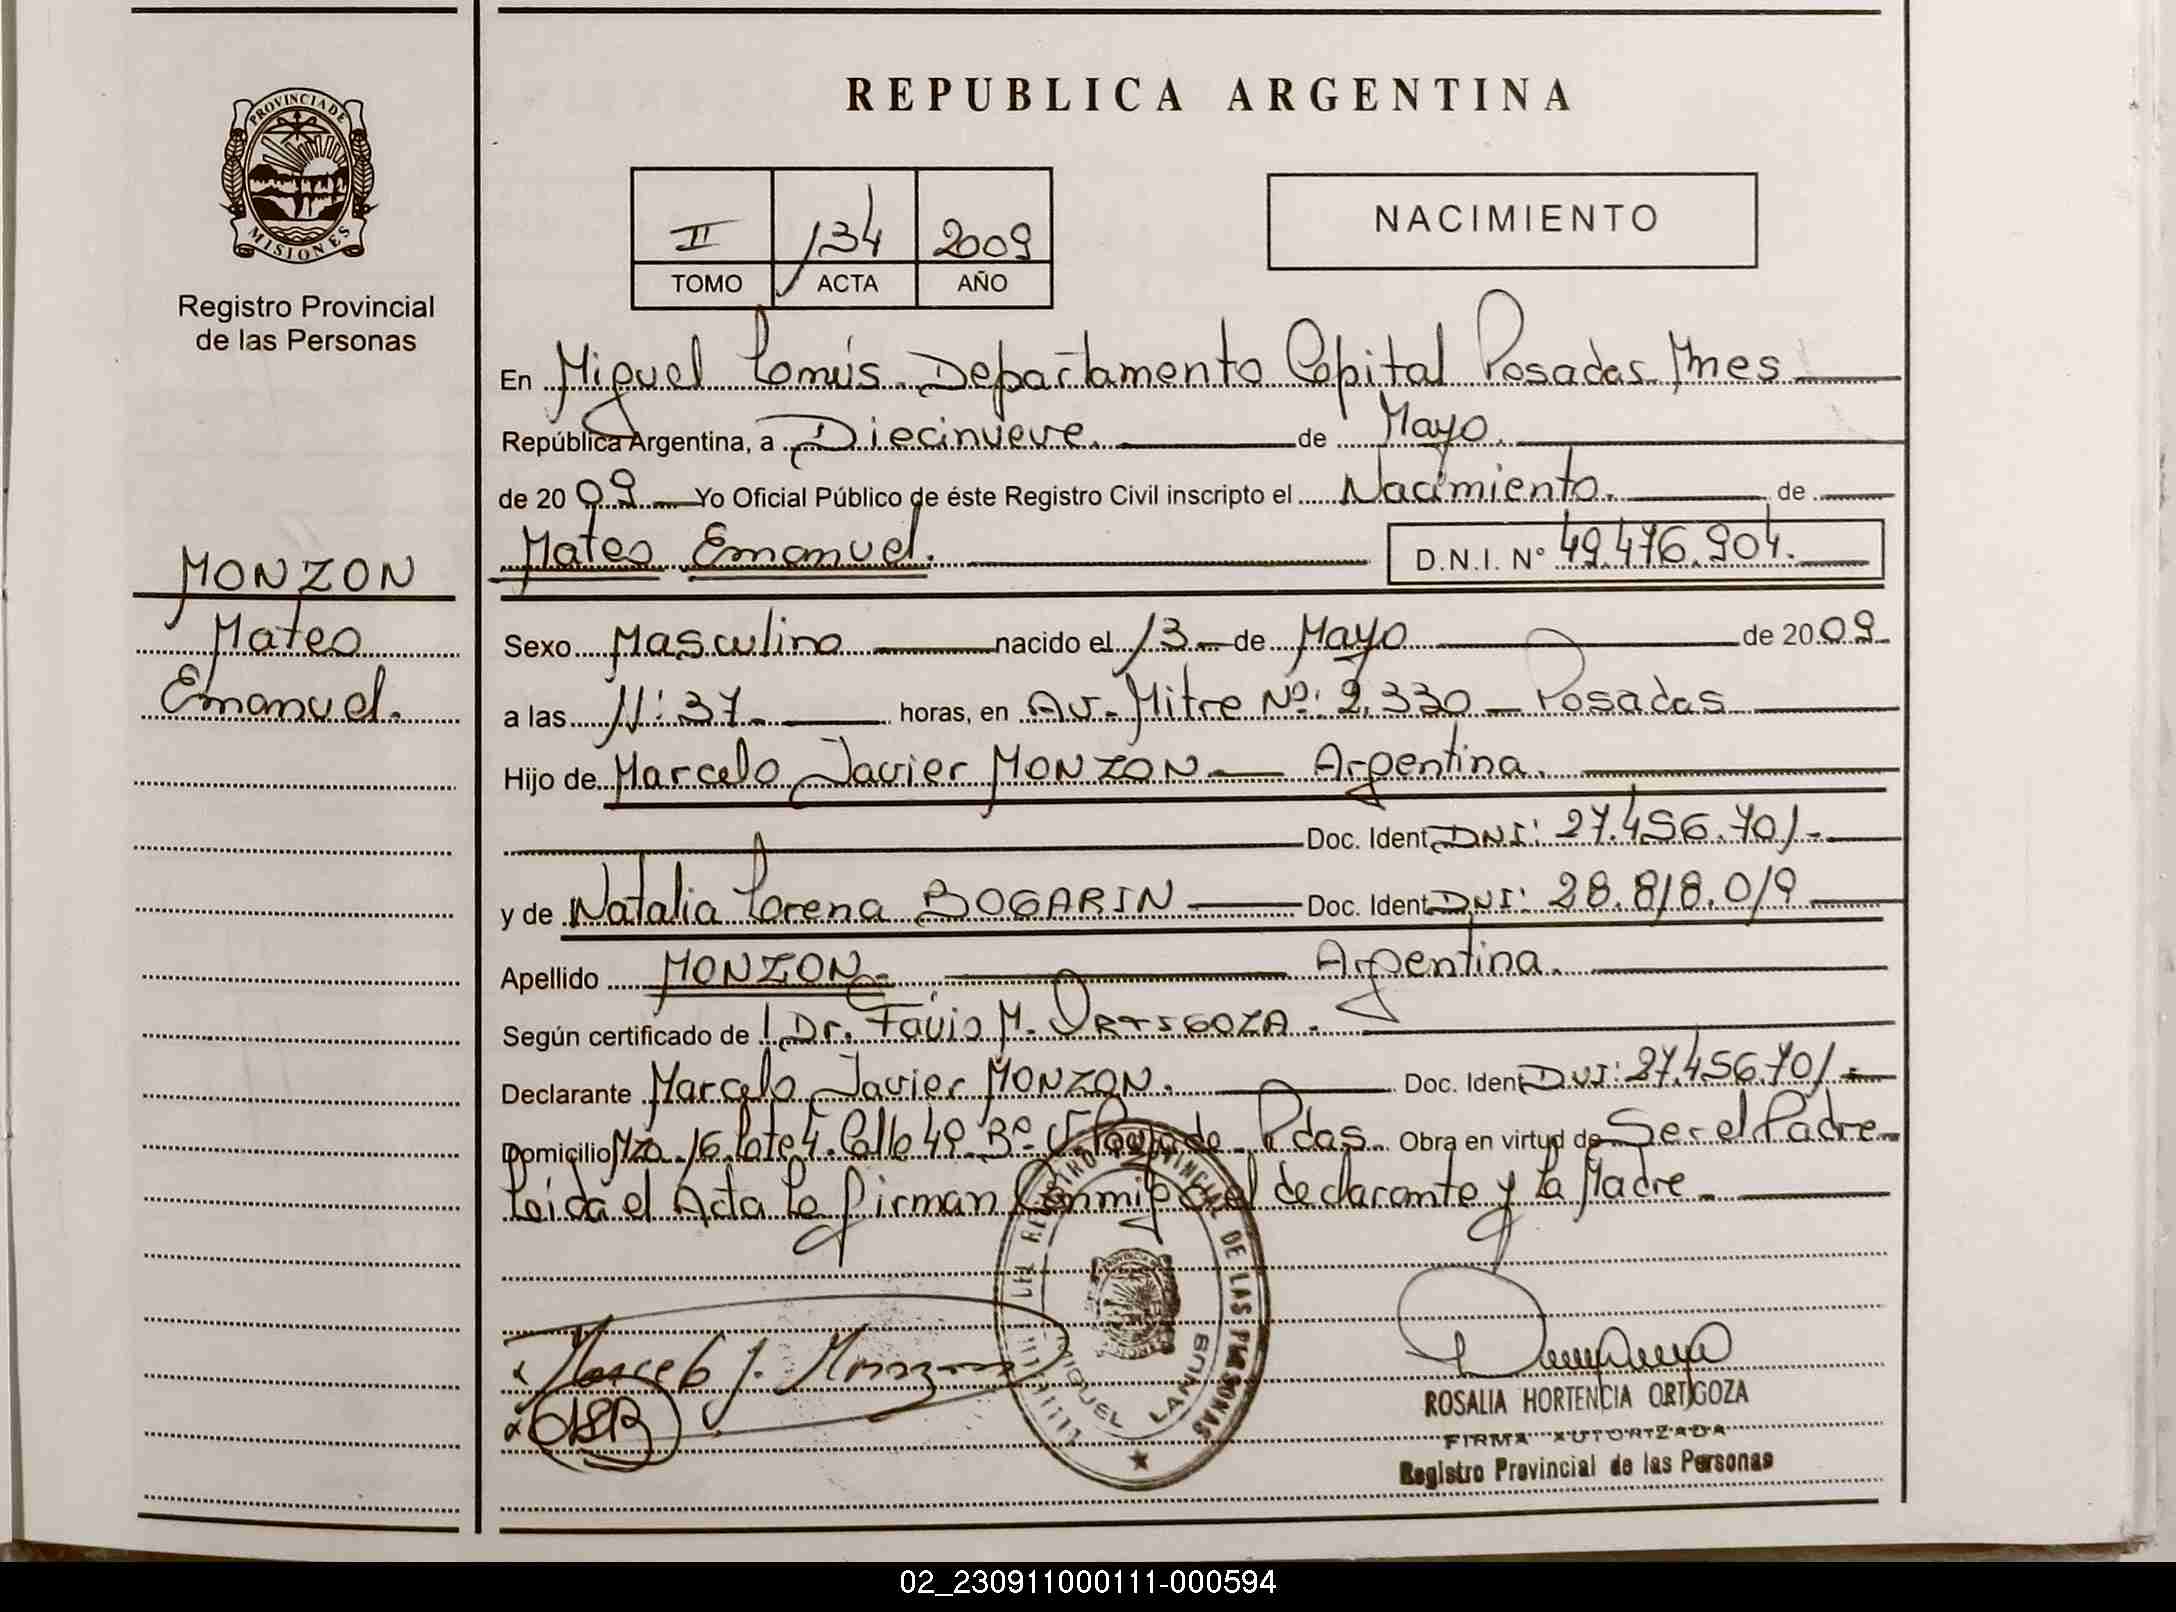 REPUBLICA ARGENTINA
PROVINCIA DE
MISIONES
Registro Provincial
de las Personas
II 134 2009
TOMO ACTA AÑO
NACIMIENTO
En Miguel Lanús Departamento Capital Posadas Mnes
República Argentina, a Diecinueve. de Mayo.
de 2009 Yo Oficial Público de éste Registro Civil inscripto el Nacimiento. de
Mateo Emanuel. D.N.I. N° 49.476.904.
MONZON
Mateo
Emanuel.
Sexo Masculino nacido el 13 de Mayo de 2009
a las 11:37 horas, en Av. Mitre Nº: 2.330 - Posadas
Hijo de Marcelo Javier MONZON - Argentina.
Doc. Ident DNI: 27.456.701.-
y de Natalia Lorena BOGARIN Doc. Ident DNI: 28.818.019
Apellido MONZON.- Argentina.
Según certificado de Dr. Favio M. ORTIGOZA.
Declarante Marcelo Javier MONZON. Doc. Ident DNI: 27.456.701.-
Domicilio Mza. 16. Lote 4. Calle 49 Bº Pdas. Obra en virtud de Ser el Padre
Leída el Acta La firman Conmigo el declarante y La Madre
REGISTRO PROVINCIAL DE LAS PERSONAS
MIGUEL LANUS
Marcelo J. Monzon
ROSALIA HORTENCIA ORTIGOZA
FIRMA AUTORIZADA
Registro Provincial de las Personas
02_230911000111-000594